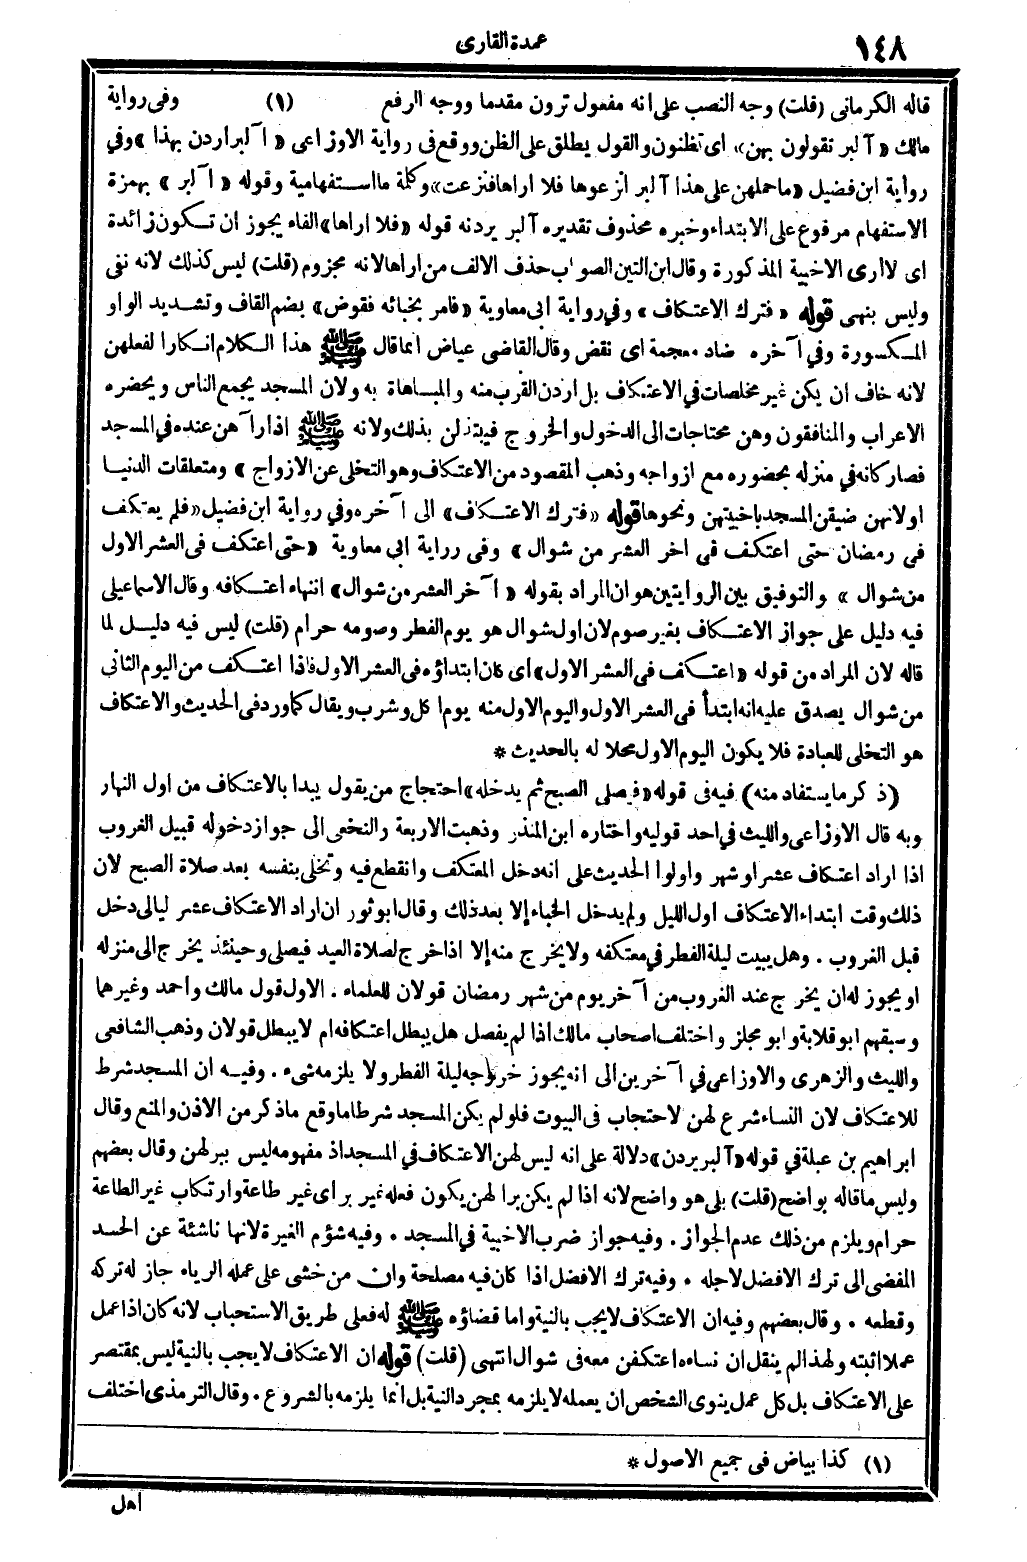 ١٤٨
عمدة القارى
قاله الكرمانى (قلت) وجه النصب على انه مفعول ترون مقدما ووجه الرفع (١) وفى رواية
مالك «آلبر تقولون بهن» اى تظنون والقول يطلق على الظن ووقع فى رواية الاوزاعى «آلبر اردن بهذا» وفي
رواية ابن فضيل «ما حملهن على هذا آلبر انزعوها فلا اراها فنزعت» وكلمة ما استفهامية وقوله «آلبر» بهمزة
الاستفهام مرفوع على الابتداء وخبره محذوف تقديره آلبر يردنه قوله «فلا اراها» الفاء يجوز ان تكون زائدة
اى لا أرى الاخبية المذكورة وقال ابن التين الصواب حذف الالف من اراها لانه مجزوم (قلت) ليس كذلك لانه نفى
وليس بنهى قوله «فترك الاعتكاف» وفي رواية ابى معاوية «فامر بخبائه فقوض» بضم القاف وتشديد الواو
المكسورة وفي آخره ضاد معجمة اى نقض وقال القاضى عياض انما قال ﷺ هذا الكلام انكارا لفعلهن
لانه خاف ان يكن غير مخلصات في الاعتكاف بل اردن القرب منه والمباهاة به ولان المسجد يجمع الناس ويحضره
الاعراب والمنافقون وهن محتاجات الى الدخول والخروج فيبتذلن بذلك ولانه ﷺ اذا رآهن عنده في المسجد
فصار كانه في منزله بحضوره مع ازواجه وذهب المقصود من الاعتكاف وهو التخلى عن الازواج » ومتعلقات الدنيا
او لانهن ضيقن المسجد باخبيتهن ونحوها قوله «فترك الاعتكاف» الى آخره وفي رواية ابن فضيل «فلم يعتكف
فى رمضان حتى اعتكف فى اخر العشر من شوال» وفى رراية ابي معاوية «حتى اعتكف فى العشر الاول
من شوال » والتوفيق بين الروايتين هو ان المراد بقوله «آخر العشر من شوال» انتهاء اعتكافه وقال الاسماعيلى
فيه دليل على جواز الاعتكاف بغير صوم لان اول شوال هو يوم الفطر وصومه حرام (قلت) ليس فيه دليل لما
قاله لان المراد من قوله «اعتكف فى العشر الاول» اى كان ابتداؤه فى العشر الاول فاذا اعتكف من اليوم الثانى
من شوال يصدق عليه انه ابتدأ فى العشر الاول واليوم الاول منه يوم اكل وشرب ويقال كما ورد فى الحديث والاعتكاف
هو التخلى للعبادة فلا يكون اليوم الاول محلا له بالحديث *
(ذكر ما يستفاد منه) فيه فى قوله «فيصلى الصبح ثم يدخله» احتجاج من يقول يبدا بالاعتكاف من اول النهار
وبه قال الاوزاعى والليث في احد قوليه واختاره ابن المنذر وذهبت الاربعة والنخعى الى جواز دخوله قبيل الغروب
اذا اراد اعتكاف عشر او شهر واولوا الحديث على انه دخل المعتكف وانقطع فيه وتخلى بنفسه بعد صلاة الصبح لان
ذلك وقت ابتداء الاعتكاف اول الليل ولم يدخل الخباء إلا بعد ذلك وقال ابو ثور ان اراد الاعتكاف عشر ليالى دخل
قبل الغروب . وهل يبيت ليلة الفطر في معتكفه ولا يخرج منه إلا اذا خرج لصلاة العيد فيصلى وحينئذ يخرج الى منزله
او يجوز له ان يخرج عند الغروب من آخر يوم من شهر رمضان قولان للعلماء . الاول قول مالك واحمد وغيرهما
وسبقهم ابو قلابة وابو مجلز واختلف اصحاب مالك اذا لم يفصل هل يبطل اعتكافه ام لا يبطل قولان وذهب الشافعى
والليث والزهرى والاوزاعى في آخرين الى انه يجوز خروجه ليلة الفطر ولا يلزمه شىء . وفيه ان المسجد شرط
للاعتكاف لان النساء شرع لهن الاحتجاب فى البيوت فلو لم يكن المسجد شرطا ما وقع ما ذكر من الاذن والمنع وقال
ابراهيم بن عبلة في قوله «آلبر يردن» دلالة على انه ليس لهن الاعتكاف في المسجد اذ مفهومه ليس ببر لهن وقال بعضهم
وليس ما قاله بواضح (قلت) بلى هو واضح لانه اذا لم يكن برا لهن يكون فعله غير بر اى غير طاعة وارتكاب غير الطاعة
حرام ويلزم من ذلك عدم الجواز . وفيه جواز ضرب الاخبية في المسجد . وفيه شؤم الغيرة لانها ناشئة عن الحسد
المفضى الى ترك الافضل لاجله . وفيه ترك الافضل اذا كان فيه مصلحة وان من خشى على عمله الرياء جاز له تركه
وقطعه . وقال بعضهم وفيه ان الاعتكاف لا يجب بالنية واما قضاؤه ﷺ له فعلى طريق الاستحباب لانه كان اذا عمل
عملا اثبته ولهذا لم ينقل ان نساءه اعتكفن معه فى شوال انتهى (قلت) قوله ان الاعتكاف لا يجب بالنية ليس بمقتصر
على الاعتكاف بل كل عمل ينوى الشخص ان يعمله لا يلزمه بمجرد النية بل انما يلزمه بالشروع . وقال الترمذى اختلف
(١) كذا بياض فى جميع الاصول *
اهل